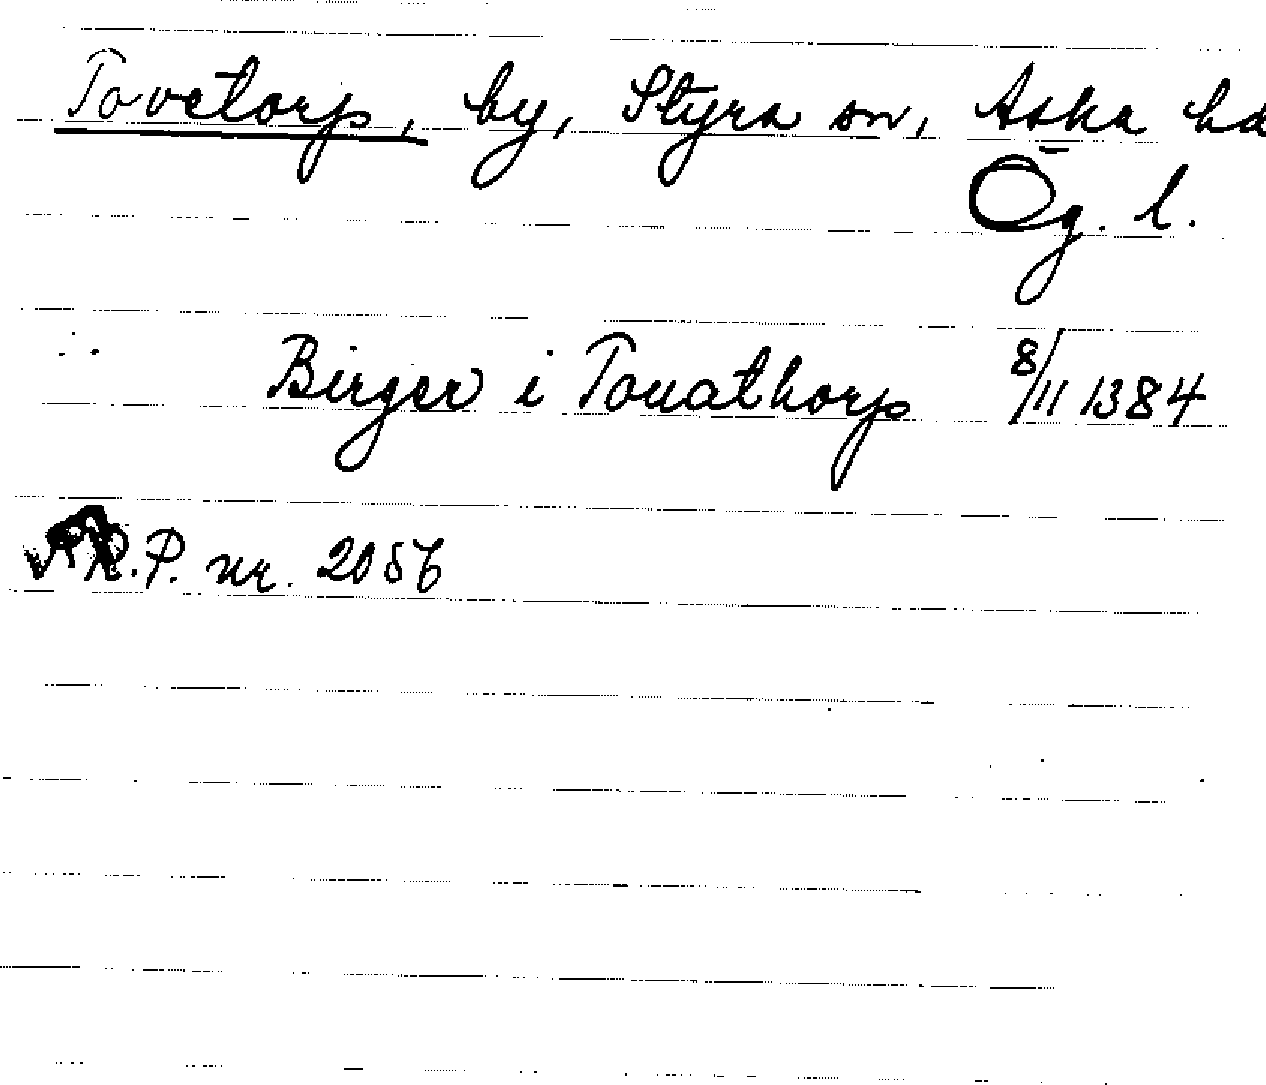 Tovetorp, by, Styra sn, Aska hd
Ög. l.
Birger i Touathorp 8/11 1384
R.P. nr. 2056